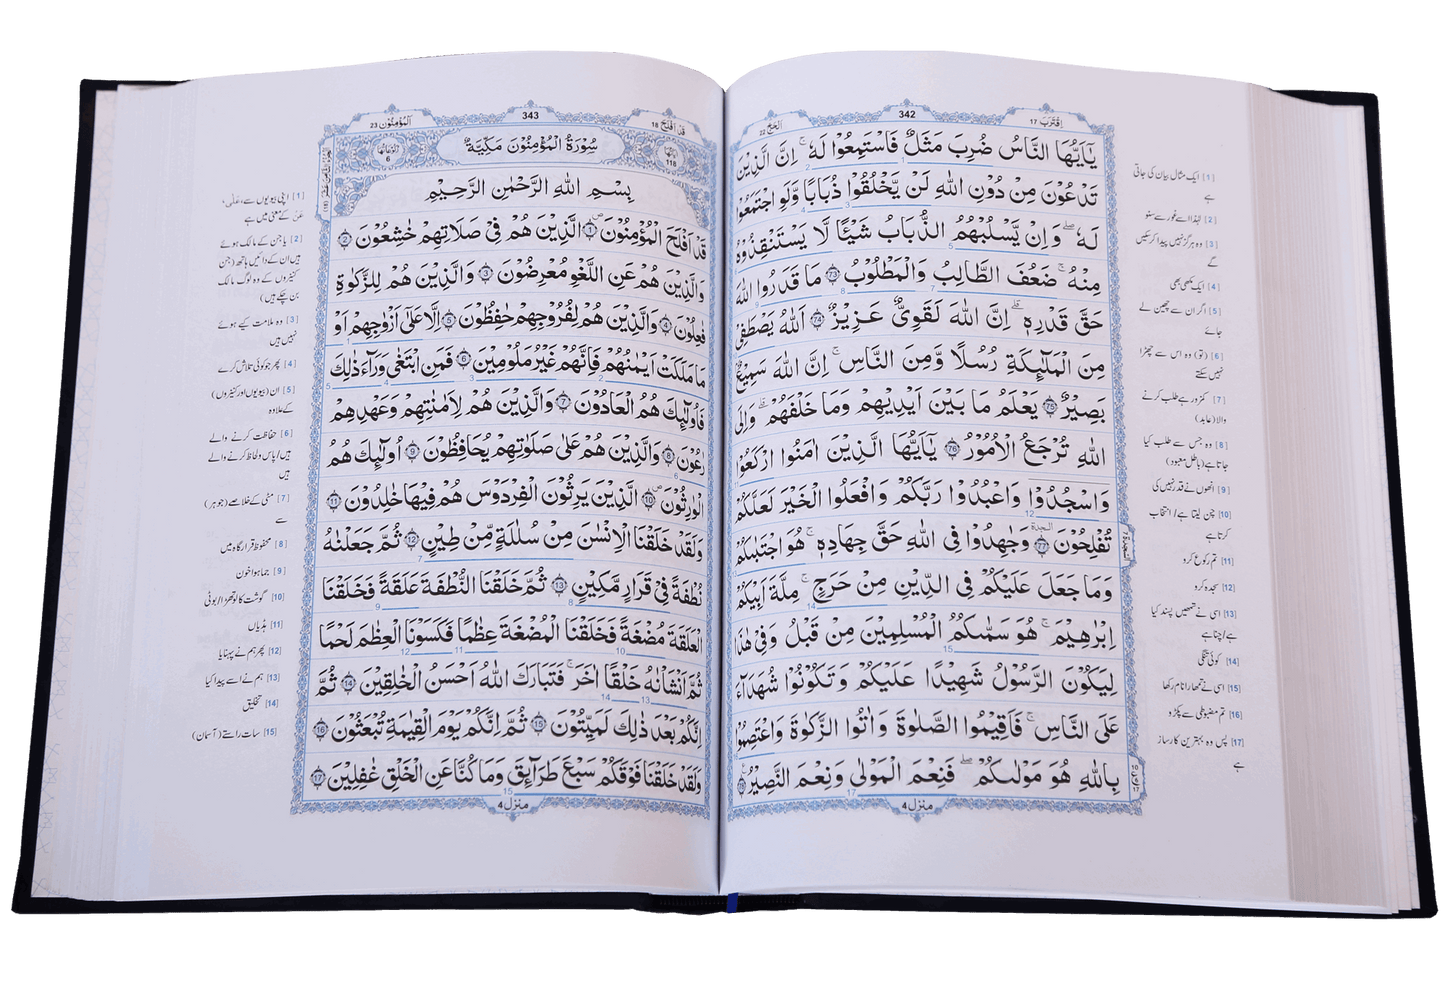 اِقْتَرَبَ 17
342
اَلْحَجّ 22
يٰۤاَيُّهَا النَّاسُ ضُرِبَ مَثَلٌ فَاسْتَمِعُوْا لَهٗ ؕ اِنَّ الَّذِيْنَ
تَدْعُوْنَ مِنْ دُوْنِ اللّٰهِ لَنْ يَّخْلُقُوْا ذُبَابًا وَّلَوِ اجْتَمَعُوْا
لَهٗ ؕ وَاِنْ يَّسْلُبْهُمُ الذُّبَابُ شَيْـًٔا لَّا يَسْتَنْقِذُوْهُ
مِنْهُ ؕ ضَعُفَ الطَّالِبُ وَالْمَطْلُوْبُ 73 مَا قَدَرُوا اللّٰهَ
حَقَّ قَدْرِهٖ ؕ اِنَّ اللّٰهَ لَقَوِيٌّ عَزِيْزٌ 74 اَللّٰهُ يَصْطَفِيْ
مِنَ الْمَلٰٓئِكَةِ رُسُلًا وَّمِنَ النَّاسِ ؕ اِنَّ اللّٰهَ سَمِيْعٌۢ
بَصِيْرٌ 75 يَعْلَمُ مَا بَيْنَ اَيْدِيْهِمْ وَمَا خَلْفَهُمْ ؕ وَاِلَى
اللّٰهِ تُرْجَعُ الْاُمُوْرُ 76 يٰۤاَيُّهَا الَّذِيْنَ اٰمَنُوا ارْكَعُوْا
وَاسْجُدُوْا وَاعْبُدُوْا رَبَّكُمْ وَافْعَلُوا الْخَيْرَ لَعَلَّكُمْ
تُفْلِحُوْنَ 77 وَجَاهِدُوْا فِي اللّٰهِ حَقَّ جِهَادِهٖ ؕ هُوَ اجْتَبٰىكُمْ
وَمَا جَعَلَ عَلَيْكُمْ فِي الدِّيْنِ مِنْ حَرَجٍ ؕ مِلَّةَ اَبِيْكُمْ
اِبْرٰهِيْمَ ؕ هُوَ سَمّٰىكُمُ الْمُسْلِمِيْنَ مِنْ قَبْلُ وَفِيْ هٰذَا
لِيَكُوْنَ الرَّسُوْلُ شَهِيْدًا عَلَيْكُمْ وَتَكُوْنُوْا شُهَدَآءَ
عَلَى النَّاسِ ۚ فَاَقِيْمُوا الصَّلٰوةَ وَاٰتُوا الزَّكٰوةَ وَاعْتَصِمُوْا
بِاللّٰهِ هُوَ مَوْلٰىكُمْ ۚ فَنِعْمَ الْمَوْلٰى وَنِعْمَ النَّصِيْرُ
منزل 4
[1] ایک مثال بیان کی جاتی
ہے
[2] لہٰذا اسے غور سے سنو
[3] وہ ہرگز نہیں پیدا کرسکیں
گے
[4] ایک مکھی بھی
[5] اگر ان سے چھین لے
جائے
[6] (تو) وہ اس سے چھڑا
نہیں سکتے
[7] کمزور ہے طلب کرنے
والا (عابد)
[8] وہ جس سے طلب کیا
جاتا ہے (باطل معبود)
[9] انھوں نے قدر نہیں کی
[10] چن لیتا ہے/ انتخاب
کرتا ہے
[11] تم رکوع کرو
[12] سجدہ کرو
[13] اسی نے تمھیں پسند کیا
ہے/ چنا ہے
[14] کوئی تنگی
[15] اسی نے تمھارا نام رکھا
[16] تم مضبوطی سے پکڑو
[17] پس وہ بہترین کارساز
ہے
قَدْ اَفْلَحَ 18
343
اَلْمُؤْمِنُوْن 23
اٰيَاتُهَا 118
سُوْرَةُ الْمُؤْمِنُوْنَ مَكِّيَّةٌ
رُكُوْعَاتُهَا 6
بِسْمِ اللّٰهِ الرَّحْمٰنِ الرَّحِيْمِ
قَدْ اَفْلَحَ الْمُؤْمِنُوْنَ 1 الَّذِيْنَ هُمْ فِيْ صَلَاتِهِمْ خٰشِعُوْنَ 2
وَالَّذِيْنَ هُمْ عَنِ اللَّغْوِ مُعْرِضُوْنَ 3 وَالَّذِيْنَ هُمْ لِلزَّكٰوةِ
فٰعِلُوْنَ 4 وَالَّذِيْنَ هُمْ لِفُرُوْجِهِمْ حٰفِظُوْنَ 5 اِلَّا عَلٰۤى اَزْوَاجِهِمْ اَوْ
مَا مَلَكَتْ اَيْمَانُهُمْ فَاِنَّهُمْ غَيْرُ مَلُوْمِيْنَ 6 فَمَنِ ابْتَغٰى وَرَآءَ ذٰلِكَ
فَاُولٰٓئِكَ هُمُ الْعَادُوْنَ 7 وَالَّذِيْنَ هُمْ لِاَمٰنٰتِهِمْ وَعَهْدِهِمْ
رَاعُوْنَ 8 وَالَّذِيْنَ هُمْ عَلٰى صَلَوٰتِهِمْ يُحَافِظُوْنَ 9 اُولٰٓئِكَ هُمُ
الْوٰرِثُوْنَ 10 الَّذِيْنَ يَرِثُوْنَ الْفِرْدَوْسَ هُمْ فِيْهَا خٰلِدُوْنَ 11
وَلَقَدْ خَلَقْنَا الْاِنْسٰنَ مِنْ سُلٰلَةٍ مِّنْ طِيْنٍ 12 ثُمَّ جَعَلْنٰهُ
نُطْفَةً فِيْ قَرَارٍ مَّكِيْنٍ 13 ثُمَّ خَلَقْنَا النُّطْفَةَ عَلَقَةً فَخَلَقْنَا
الْعَلَقَةَ مُضْغَةً فَخَلَقْنَا الْمُضْغَةَ عِظٰمًا فَكَسَوْنَا الْعِظٰمَ لَحْمًا
ثُمَّ اَنْشَاْنٰهُ خَلْقًا اٰخَرَ ؕ فَتَبَارَكَ اللّٰهُ اَحْسَنُ الْخٰلِقِيْنَ 14 ثُمَّ
اِنَّكُمْ بَعْدَ ذٰلِكَ لَمَيِّتُوْنَ 15 ثُمَّ اِنَّكُمْ يَوْمَ الْقِيٰمَةِ تُبْعَثُوْنَ 16
وَلَقَدْ خَلَقْنَا فَوْقَكُمْ سَبْعَ طَرَآئِقَ وَمَا كُنَّا عَنِ الْخَلْقِ غٰفِلِيْنَ 17
منزل 4
[1] اپنی بیویوں سے، عَلٰى،
عَنْ کے معنی میں ہے
[2] یا جن کے مالک ہوئے
ہیں ان کے دائیں ہاتھ (جن
کنیزوں کے وہ لوگ مالک
بن چکے ہیں)
[3] وہ ملامت کیے ہوئے
نہیں ہیں
[4] پھر جو کوئی تلاش کرے
[5] ان (بیویوں اور کنیزوں)
کے علاوہ
[6] حفاظت کرنے والے
ہیں/ پاس ولحاظ کرنے والے
ہیں
[7] مٹی کے خلاصے (جوہر)
سے
[8] محفوظ قرارگاہ میں
[9] جما ہوا خون
[10] گوشت کا لوتھڑا/ بوٹی
[11] ہڈیاں
[12] پھر ہم نے پہنایا
[13] ہم نے اسے پیدا کیا
[14] تخلیق
[15] سات راستے (آسمان)